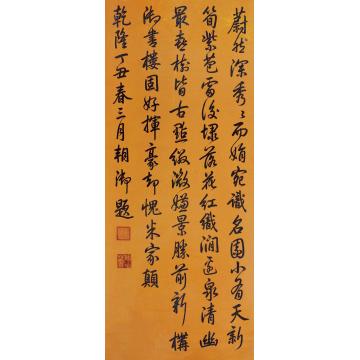 蔚然深秀々而娟宛識名園小有天新
筍紫苞雷後坼落花紅織澗邊泉清幽
最喜樹皆古點綴微嫌景勝前新構
御書樓固好揮豪却愧米家顛
乾隆丁丑春三月朝御題